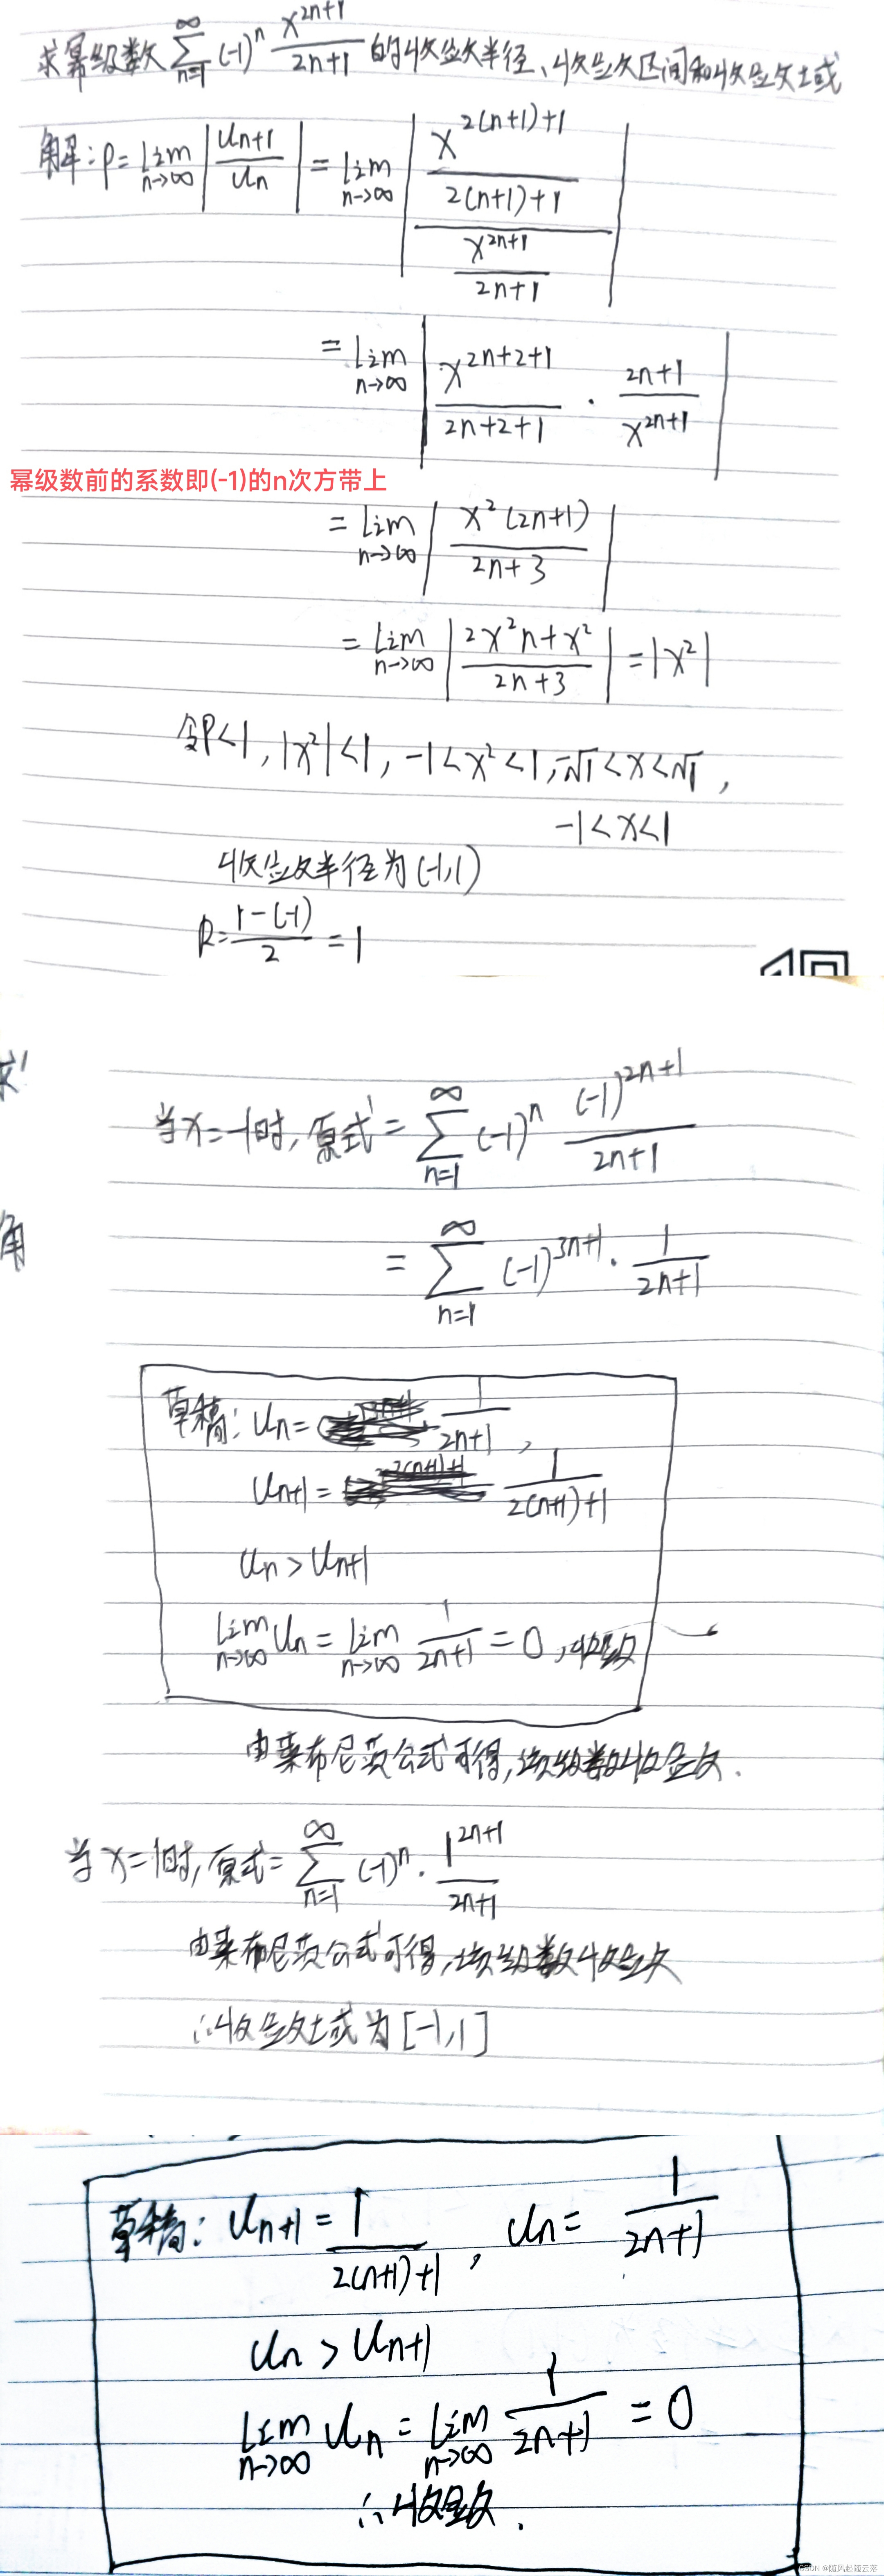 求幂级数 ∑_{n=1}^{∞} (-1)^n x^{2n+1}/(2n+1) 的收敛半径、收敛区间和收敛域
解: ρ = lim_{n→∞} |u_{n+1}/u_n| = lim_{n→∞} |(x^{2(n+1)+1}/(2(n+1)+1))/(x^{2n+1}/(2n+1))|
= lim_{n→∞} |x^{2n+2+1}/(2n+2+1) · (2n+1)/x^{2n+1}|
幂级数前的系数即(-1)的n次方带上
= lim_{n→∞} |x²(2n+1)/(2n+3)|
= lim_{n→∞} |(2x²n+x²)/(2n+3)| = |x²|
令ρ<1, |x²|<1, -1<x²<1, -√1<x<√1,
-1<x<1
收敛半径为(-1,1)
R = (1-(-1))/2 = 1
求
当x=-1时, 原式 = ∑_{n=1}^{∞} (-1)^n (-1)^{2n+1}/(2n+1)
解
= ∑_{n=1}^{∞} (-1)^{3n+1} · 1/(2n+1)
草稿: u_n = 1/(2n+1),
u_{n+1} = 1/(2(n+1)+1)
u_n > u_{n+1}
lim_{n→∞} u_n = lim_{n→∞} 1/(2n+1) = 0, 收敛
由莱布尼茨公式可得, 该级数收敛.
当x=1时, 原式 = ∑_{n=1}^{∞} (-1)^n · 1^{2n+1}/(2n+1)
由莱布尼茨公式可得, 该级数收敛
∴收敛域为[-1,1]
草稿: u_{n+1} = 1/(2(n+1)+1), u_n = 1/(2n+1)
u_n > u_{n+1}
lim_{n→∞} u_n = lim_{n→∞} 1/(2n+1) = 0
∴收敛.
CSDN @随风起随云落